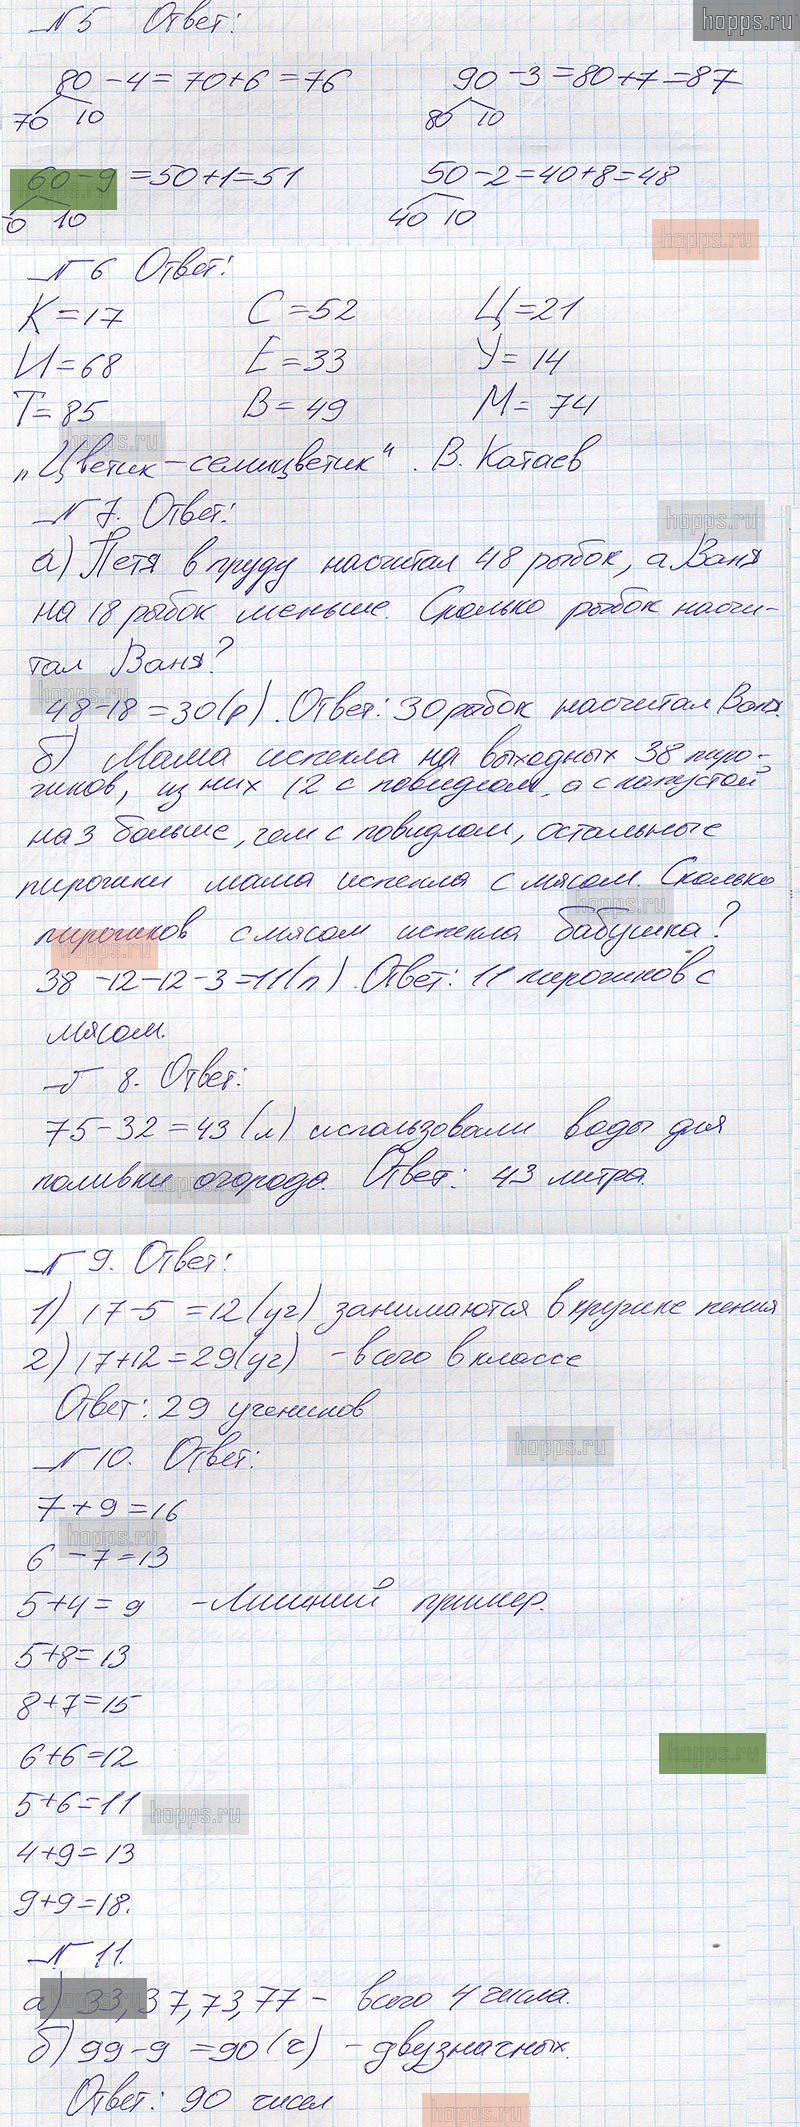 №5 Ответ:
80-4=70+6=76 90-3=80+7=87
70 10 80 10
60-9=50+1=51 50-2=40+8=48
0 10 40 10
№6 Ответ:
К=17 С=52 Ц=21
И=68 Е=33 У=14
Т=85 В=49 М=74
„Цветик-семицветик“. В. Катаев
№7. Ответ:
а) Петя в пруду насчитал 48 рыбок, а Ваня
на 18 рыбок меньше. Сколько рыбок насчи-
тал Ваня?
48-18=30(р). Ответ: 30 рыбок насчитал Ваня.
б) Мама испекла на выходных 38 пиро-
гиков, из них 12 с повидлом, а с капустой
на 3 больше, чем с повидлом, остальные
пирожки мама испекла с мясом. Сколько
пирогиков с мясом испекла бабушка?
38-12-12-3=11(п). Ответ: 11 пирогиков с
мясом.
№8. Ответ:
75-32=43(л) использовали воды для
поливки огорода. Ответ: 43 литра.
№9. Ответ:
1) 17-5=12(уч) занимаются в кружке пения
2) 17+12=29(уч) - всего в классе
Ответ: 29 учеников
№10. Ответ:
7+9=16
6-7=13
5+4=9 -Лишний пример.
5+8=13
8+7=15
6+6=12
5+6=11
4+9=13
9+9=18.
№11.
а) 33,37,73,77- всего 4 числа.
б) 99-9=90(ч) -двузначных.
Ответ: 90 чисел
hopps.ru
hopps.ru
hopps.ru
hopps.ru
hopps.ru
hopps.ru
hopps.ru
hopps.ru
hopps.ru
hopps.ru
hopps.ru
hopps.ru
hopps.ru
hopps.ru